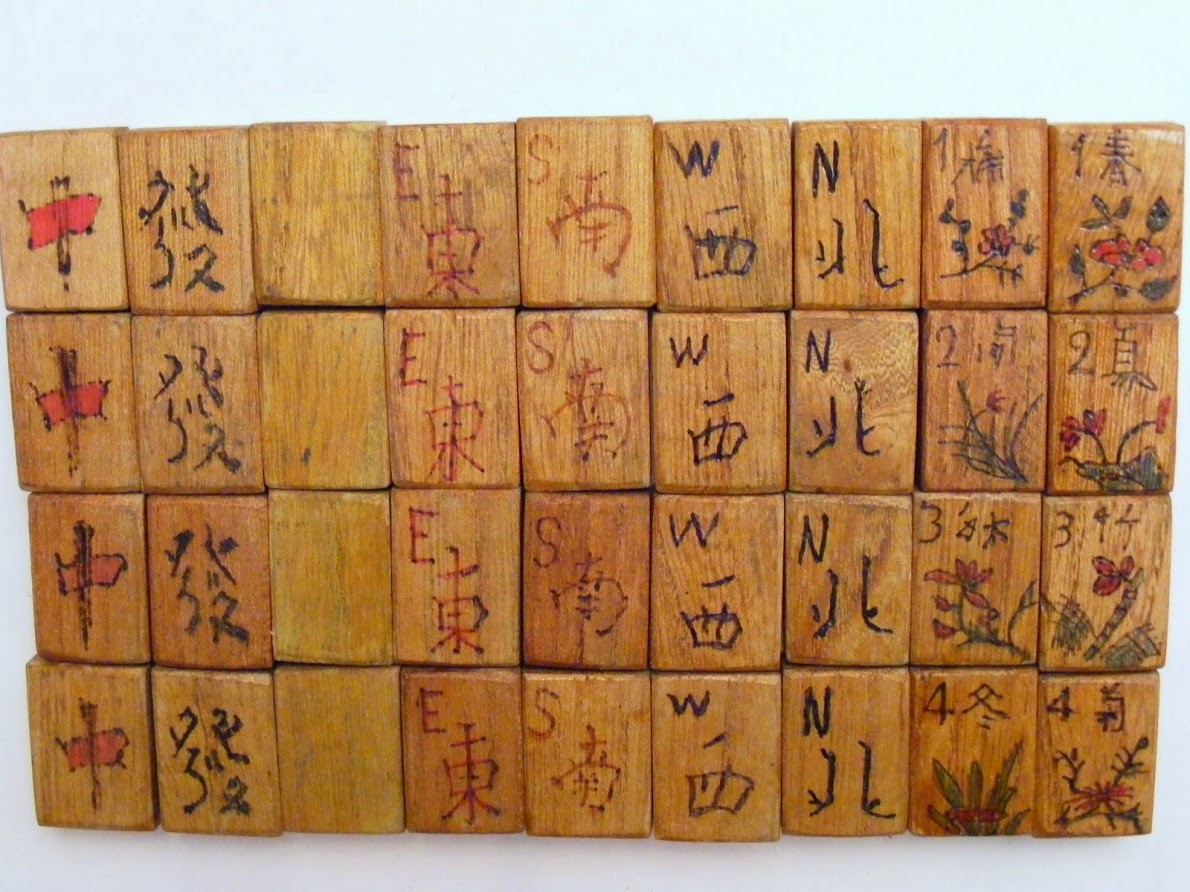 E S W N 1 梅 1 春
中 發 東 南 西 北
E S W N 2 2 夏
中 發 東 南 西 北
E S W N 3 秋 3 竹
中 發 東 南 西 北
E S W N 4 冬 4 菊
中 發 東 南 西 北